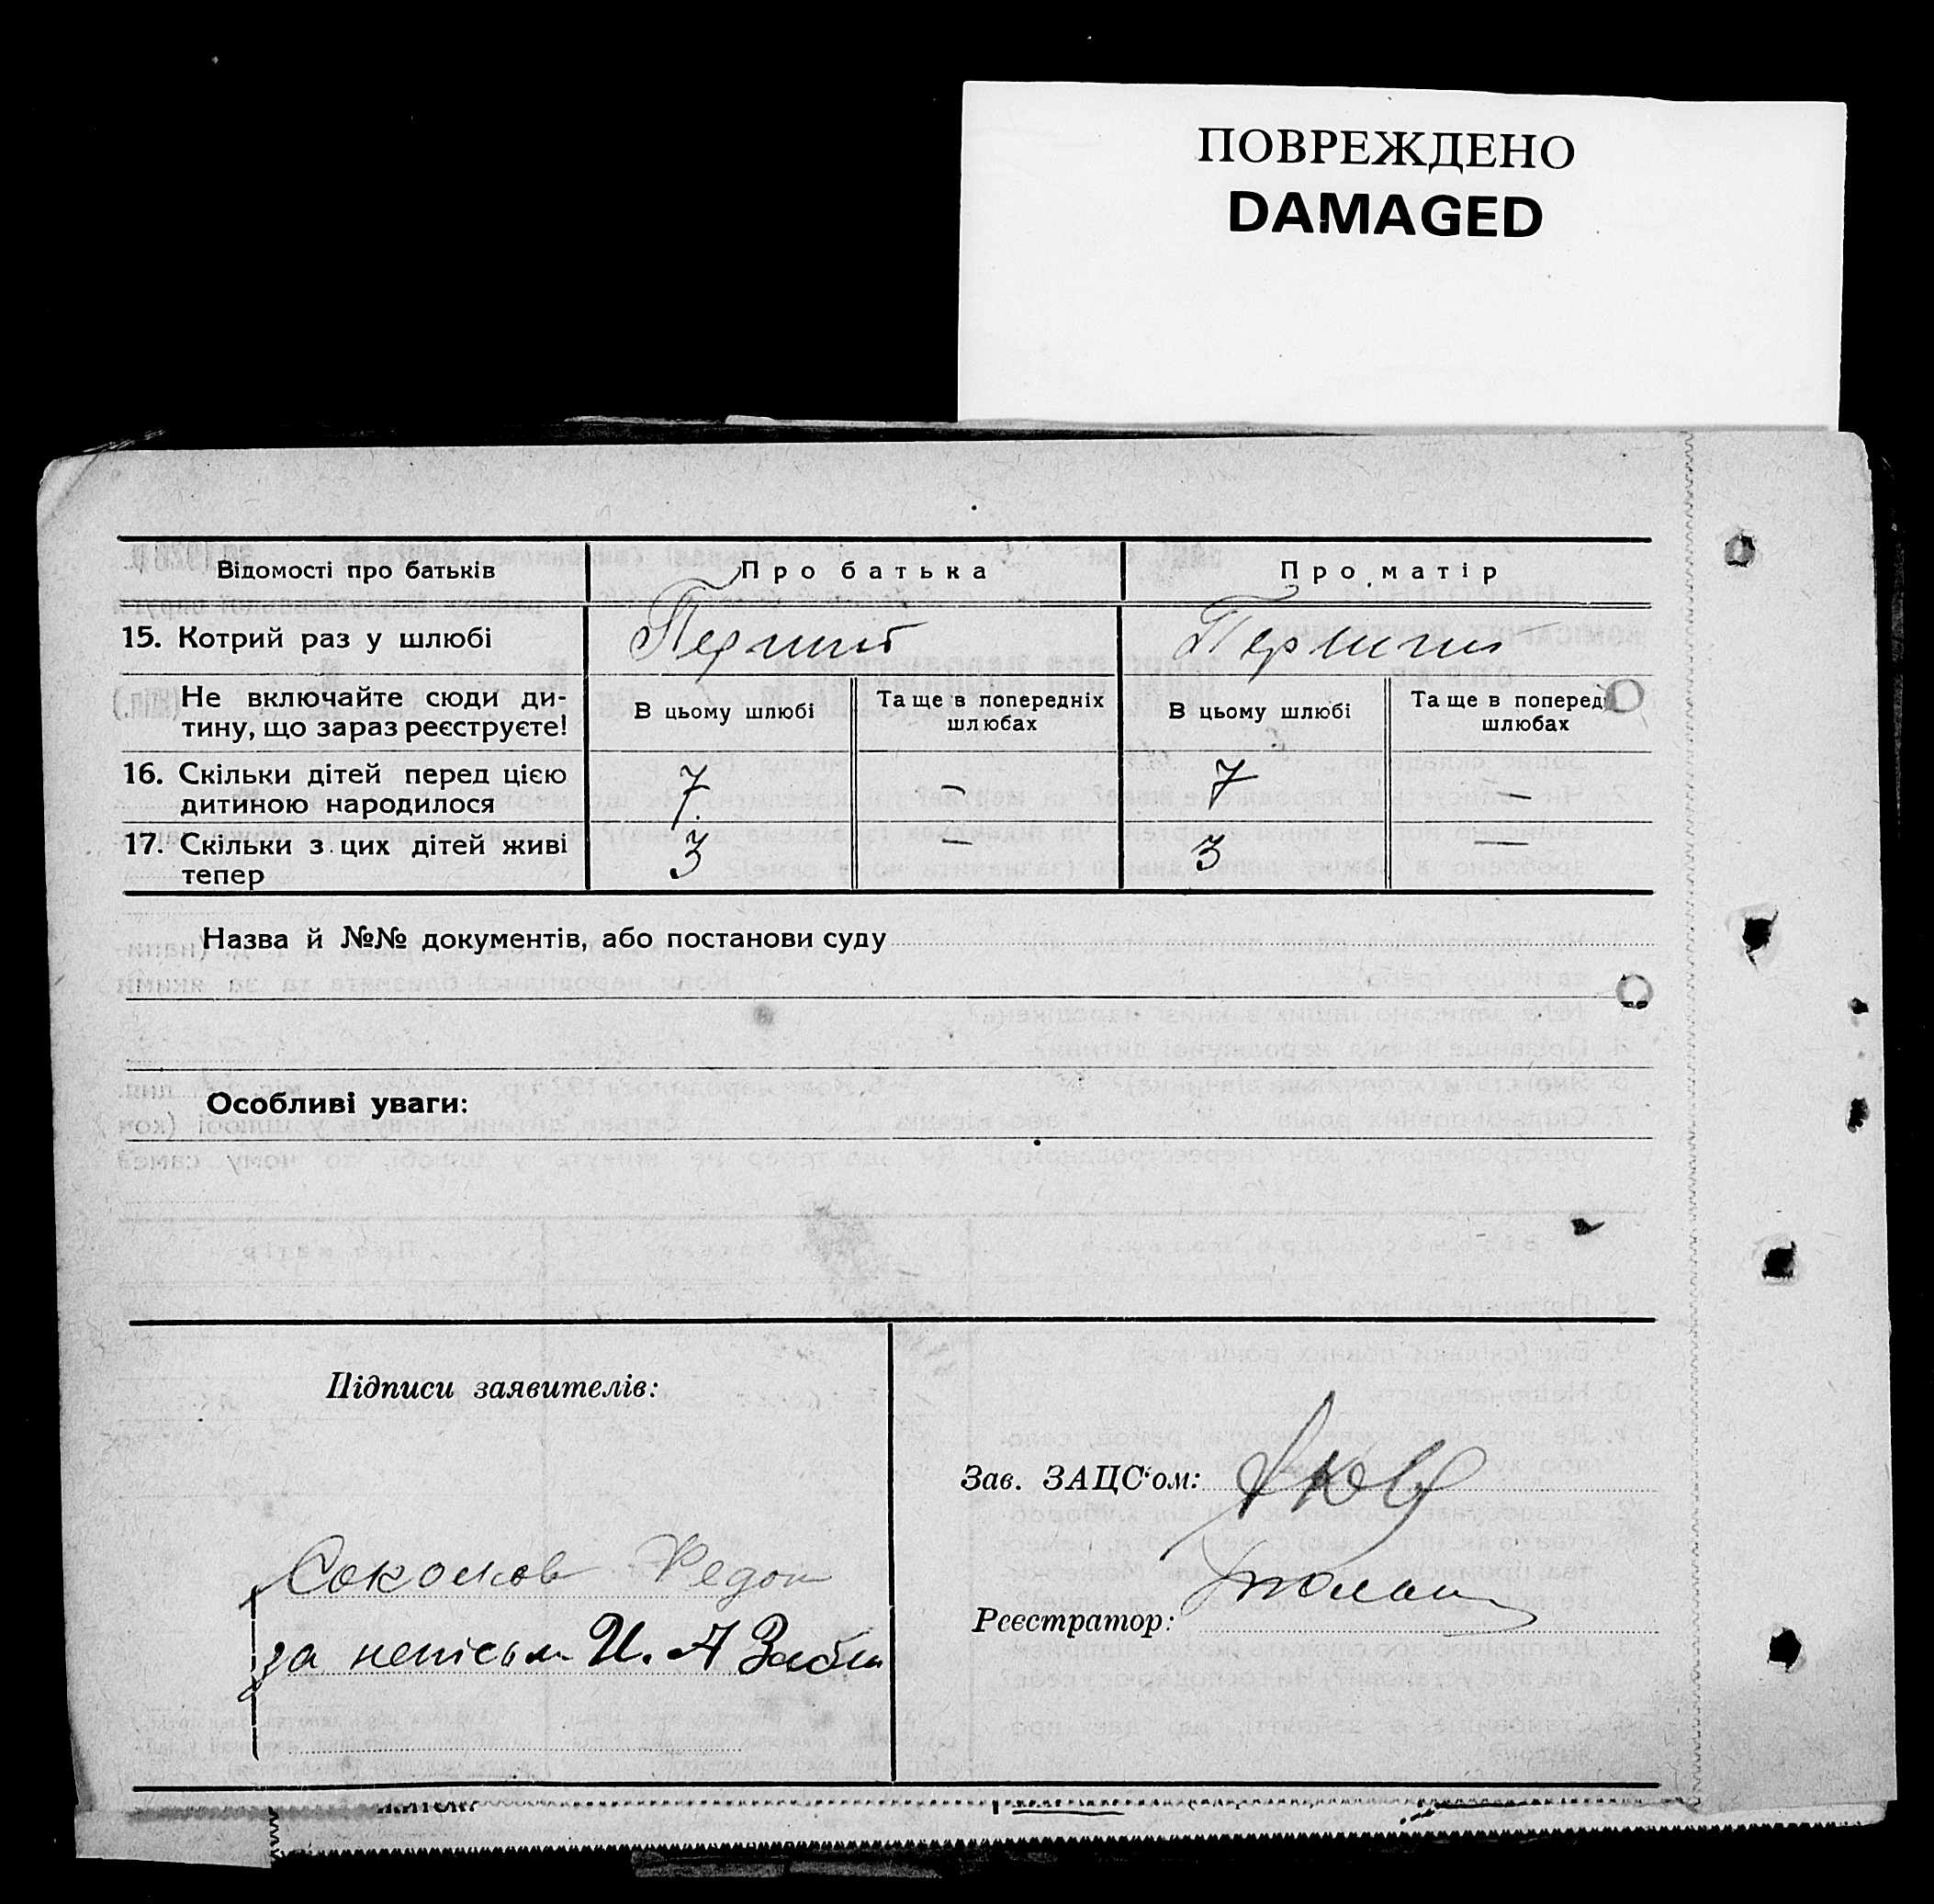 ПОВРЕЖДЕНО
DAMAGED
Відомості про батьків
Про батька
Про матір
15. Котрий раз у шлюбі
Перший
Перший
Не включайте сюди ди-
тину, що зараз реєструєте!
В цьому шлюбі
Та ще в попередніх
шлюбах
В цьому шлюбі
Та ще в поперед
шлюбах
16. Скільки дітей перед цією
дитиною народилося
7
–
7
–
17. Скільки з цих дітей живі
тепер
3
–
3
–
Назва й №№ документів, або постанови суду
Особливі уваги:
Підписи заявителів:
Соколов Федот
за непісьм И. А
Зав. ЗАЦС'ом:
Реєстратор: